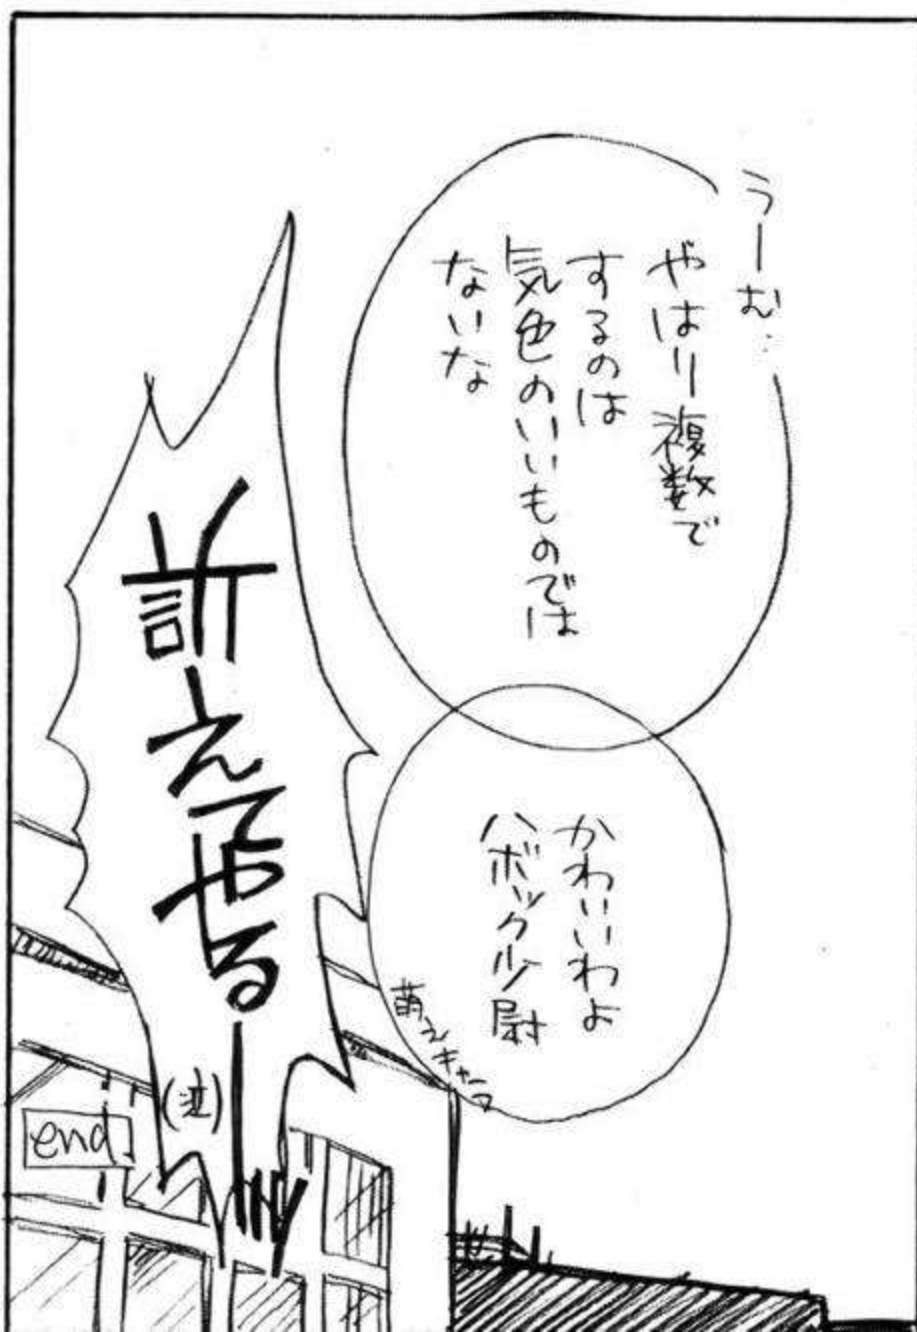 うーむ…
やはり複数で
するのは
気色のいいものでは
ないな
かわいいわよ
ハボック少尉
萌えキャラ
訴えてやるーーっ!!
(泣)
end